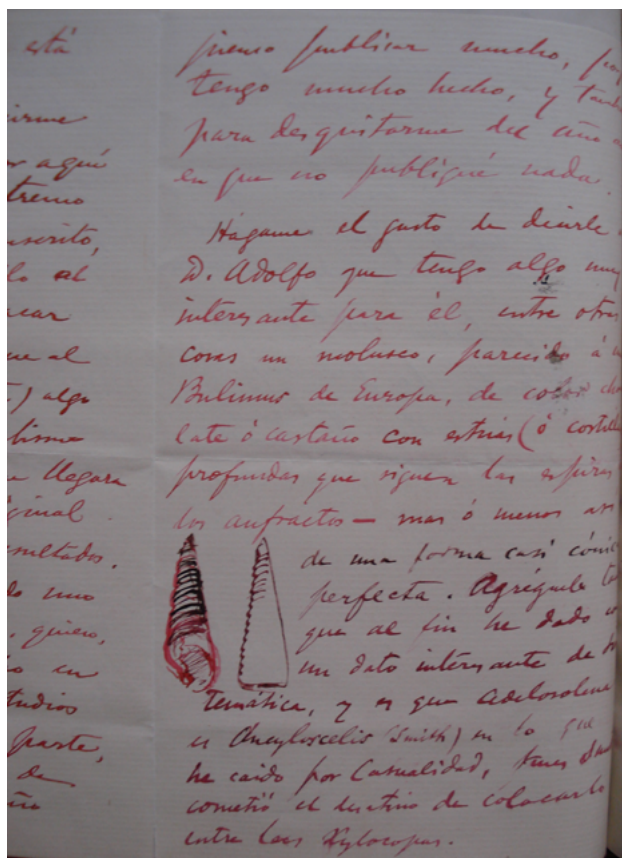 está
irme
aquí
tremo
nscrito,
lo al
car
ue al
) algo
lisma
a llegara
ginal
sultados.
do uno
, quiero,
o en
tudios
parte,
de
pienso publicar mucho,
tengo mucho hecho, y tam
para desquitarme del año
en que no publiqué nada.
Hágame el gusto de decirle
D. Adolfo que tengo algo muy
interesante para él, entre otras
cosas un molusco, parecido á
Bulimus de Europa, de color cho
late ó castaño con estrias (ó costill
profundas que siguen las espiras
los anfractos — mas ó menos así
de una forma casi cónica
perfecta. Agréguele
que al fin he dado
un dato interesante de
temática, y es que
es Ancyloscelis (Smith) en lo que
he caido por Casualidad, pues
cometió el destino de colocarlo
entre las Xylocopas.